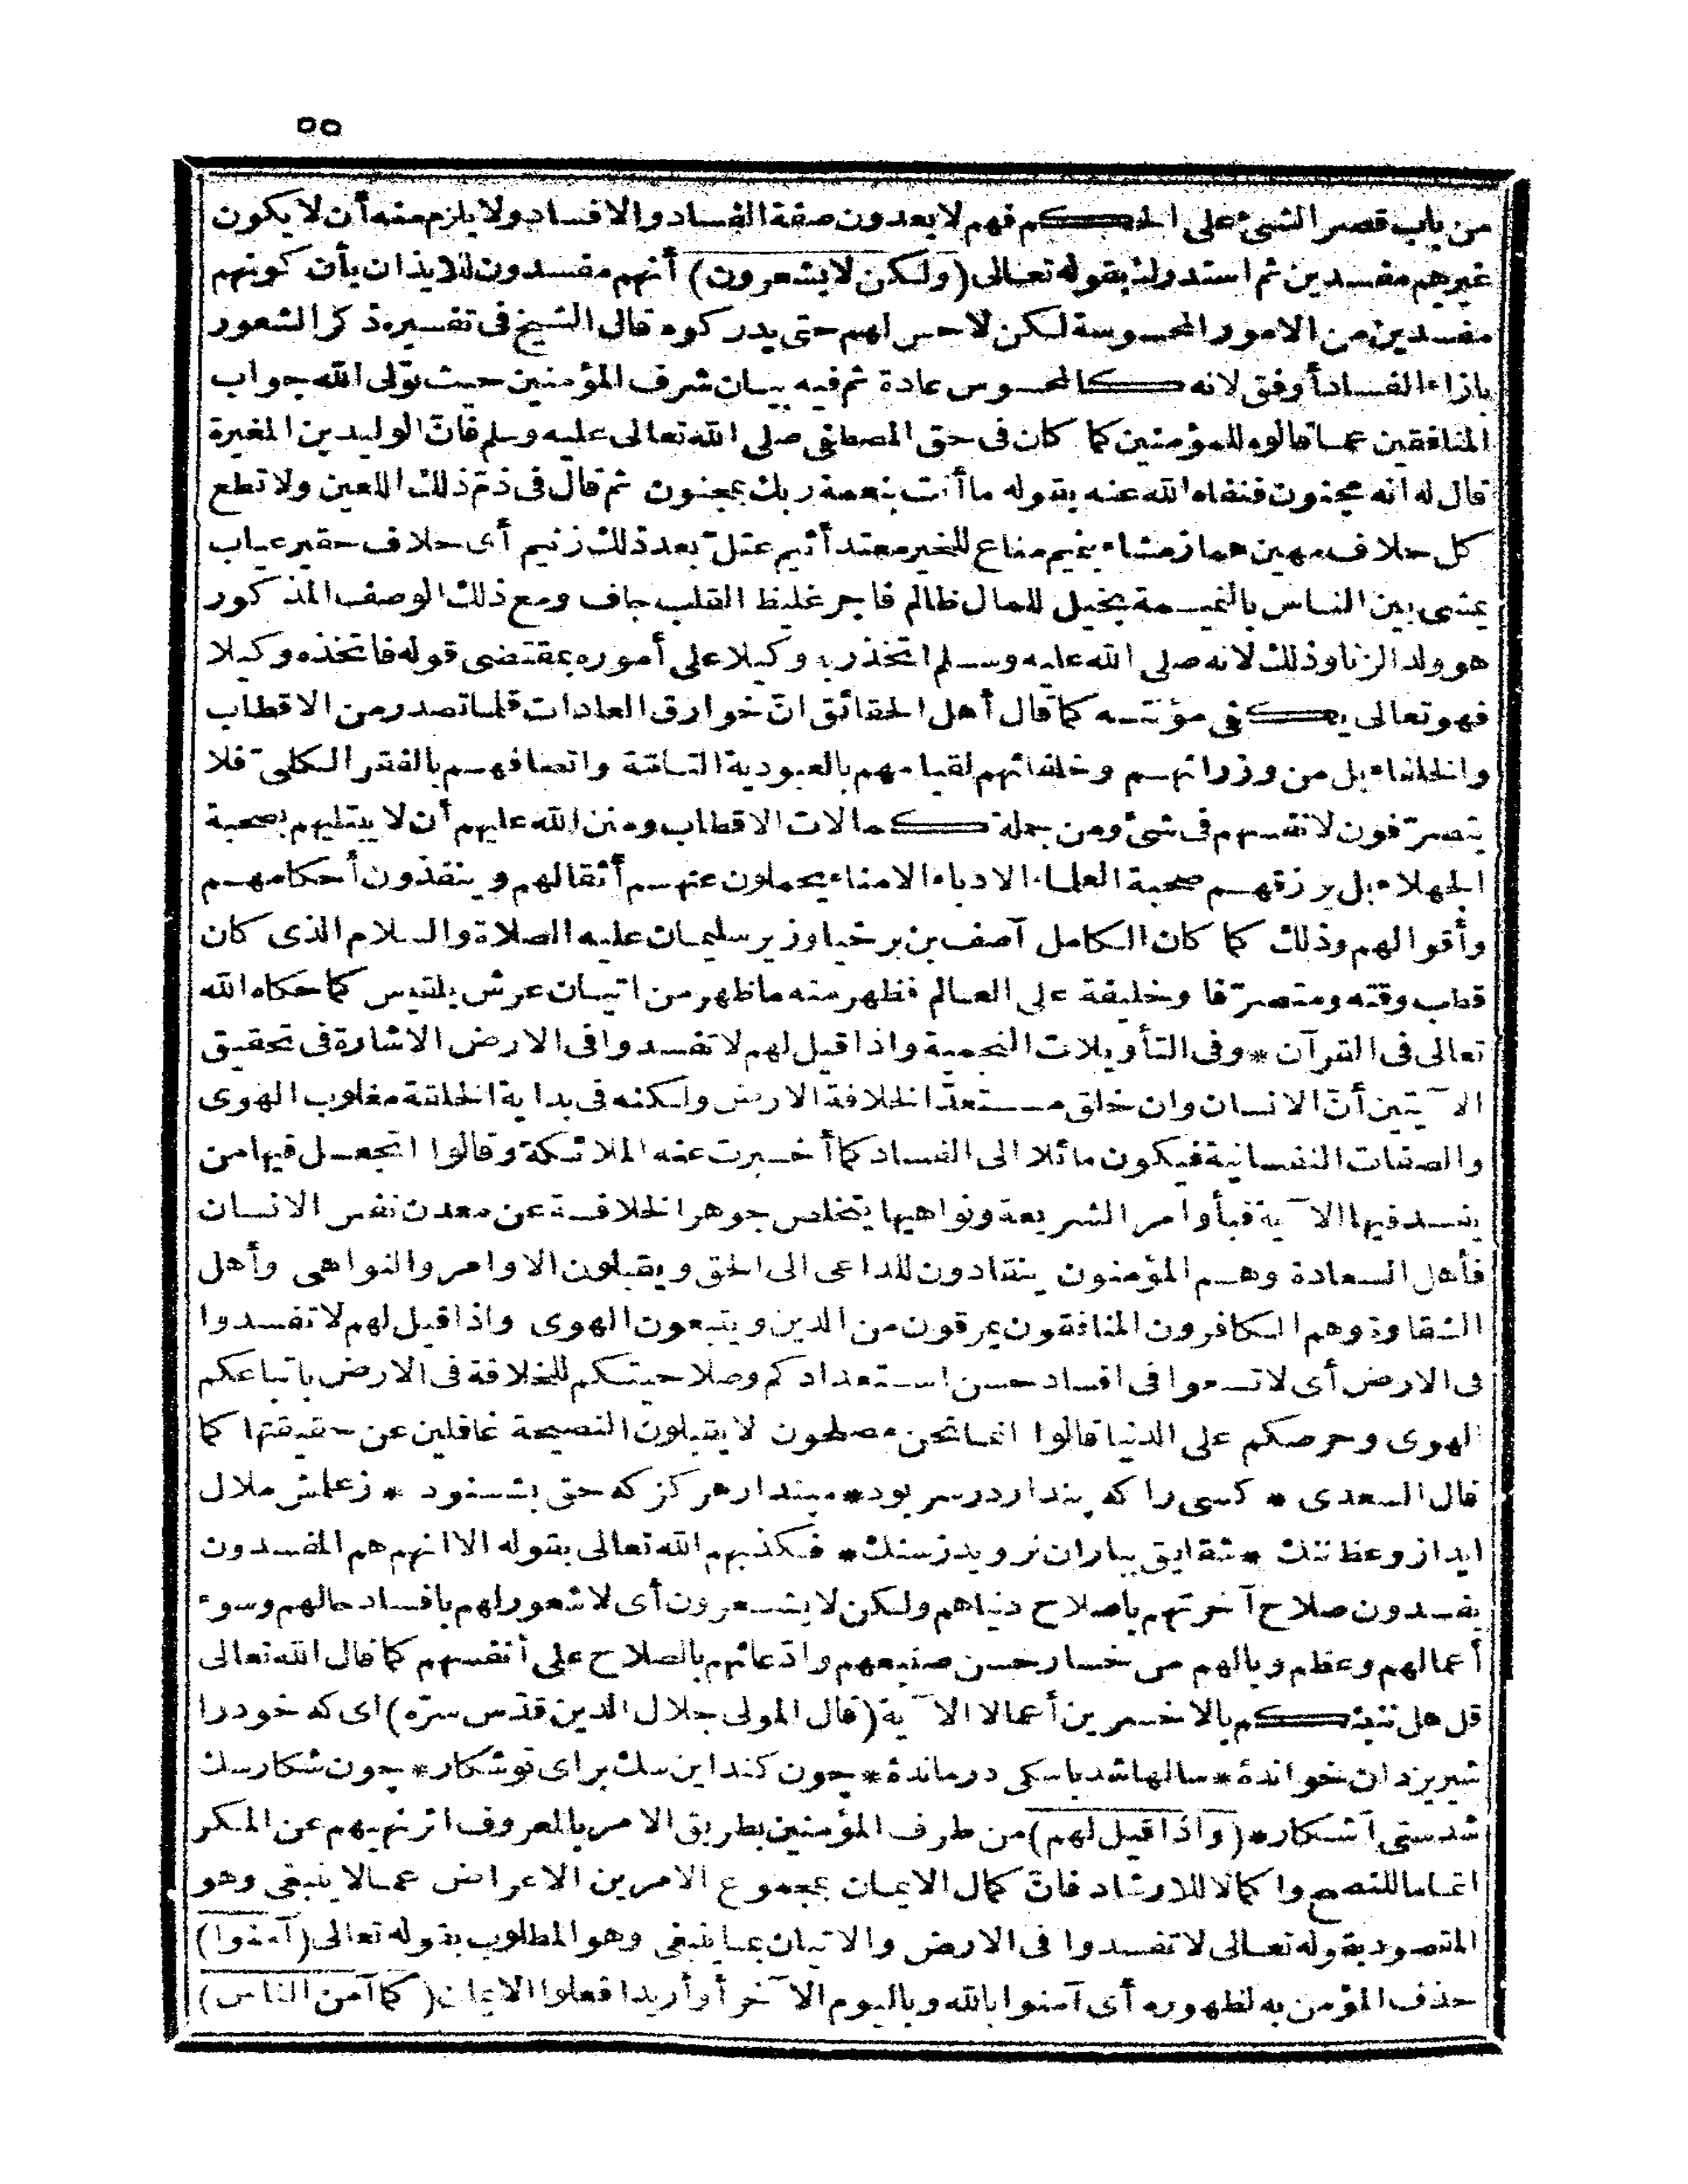 ٥٥
من باب قصر الشئ على الحكم فهم لا يعدون صفة الفساد والافساد ولا يلزم منه أن لا يكون
غيرهم مفسدين ثم استدرك بقوله تعالى (ولكن لا يشعرون) أنهم مفسدون للايذان بأن كونهم
مفسدين من الامور المحسوسة لكن لا حس لهم حتى يدركوه قال الشيخ فى تفسيره ذكر الشعور
بازاء الفساد أوفق لانه كالمحسوس عادة ثم فيه بيان شرف المؤمنين حيث تولى الله جواب
المنافقين عما قالوه للمؤمنين كما كان فى حق المصطفى صلى الله تعالى عليه وسلم فان الوليد بن المغيرة
قال له انه مجنون فنفاه الله عنه بقوله ما أنت بنعمة ربك بمجنون ثم قال فى ذم ذلك اللعين ولا تطع
كل حلاف مهين هماز مشاء بنميم مناع للخير معتد أثيم عتل بعد ذلك زنيم أى حلاف حقير عياب
يمشى بين الناس بالنميمة بخيل للمال ظالم فاجر غليظ القلب جاف ومع ذلك الوصف المذكور
هو ولد الزنا وذلك لانه صلى الله عليه وسلم اتخذ ربه وكيلا على أموره بمقتضى قوله فاتخذه وكيلا
فهو تعالى يكفى مؤنته كما قال أهل الحقائق انّ خوارق العادات قلما تصدر من الاقطاب
والخلفاء بل من وزرائهم وخلفائهم لقيامهم بالعبودية التامّة واتصافهم بالفقر الكلىّ فلا
يتصرّفون لانفسهم فى شئ ومن جملة كمالات الاقطاب ومنن الله عليهم أن لا يبتليهم بصحبة
الجهلاء بل يرزقهم صحبة العلماء الادباء الامناء يحملون عنهم أثقالهم وينفذون أحكامهم
وأقوالهم وذلك كما كان الكامل آصف بن برخيا وزير سليمان عليه الصلاة والسلام الذى كان
قطب وقته ومتصرّفا وخليفة على العالم فظهر منه ما ظهر من اتيان عرش بلقيس كما حكاه الله
تعالى فى القرآن * وفى التأويلات النجمية واذا قيل لهم لا تفسدوا فى الارض الاشارة فى تحقيق
الآيتين أنّ الانسان وان خلق مستعدّا لخلافة الارض ولكنه فى بداية الخلقة مغلوب الهوى
والصفات النفسانية فيكون مائلا الى الفساد كما أخبرت عنه الملائكة وقالوا اتجعل فيها من
يفسد فيها الآية فبأوامر الشريعة ونواهيها يتخلص جوهر الخلافة عن معدن نفس الانسان
فأهل السعادة وهم المؤمنون ينقادون للداعى الى الحق ويقبلون الاوامر والنواهى وأهل
الشقاوة وهم الكافرون المنافقون يمرقون من الدين ويتبعون الهوى واذا قيل لهم لا تفسدوا
فى الارض أى لا تسعوا فى افساد حسن استعدادكم وصلاحيتكم للخلافة فى الارض باتباعكم
الهوى وحرصكم على الدنيا قالوا انما نحن مصلحون لا يقبلون النصيحة غافلين عن حقيقتها كما
قال السعدى * كسى را كه پندار در سر بود * مپندار هركز كه حق بشنود * ز علمش ملال
ايد از وعظ ننك * شقايق بباران نرويد ز سنك * فكذبهم الله تعالى بقوله الا انهم هم المفسدون
يفسدون صلاح آخرتهم باصلاح دنياهم ولكن لا يشعرون أى لا شعور لهم بافساد حالهم وسوء
أعمالهم وعظم وبالهم من خسار حسن صنيعهم وادّعائهم بالصلاح على أنفسهم كما قال الله تعالى
قل هل ننبئكم بالاخسرين أعمالا الآية (قال المولى جلال الدين قدّس سرّه) اى كه خود را
شير يزدان خواندهٔ * سالها شد باسكى درماندهٔ * چون كند اين سك براى تو شكار * چون شكار سك
شدستى آشكار * (واذا قيل لهم) من طرف المؤمنين بطريق الامر بالمعروف اثر نهيهم عن المنكر
اتماما للنصح واكمالا للارشاد فانّ كمال الايمان بمجموع الامرين الاعراض عما لا ينبغى وهو
المقصود بقوله تعالى لا تفسدوا فى الارض والاتيان بما ينبغى وهو المطلوب بقوله تعالى (آمنوا)
حذف المؤمن به لظهوره أى آمنوا بالله وباليوم الآخر أو أريد افعلوا الايمان (كما آمن الناس)